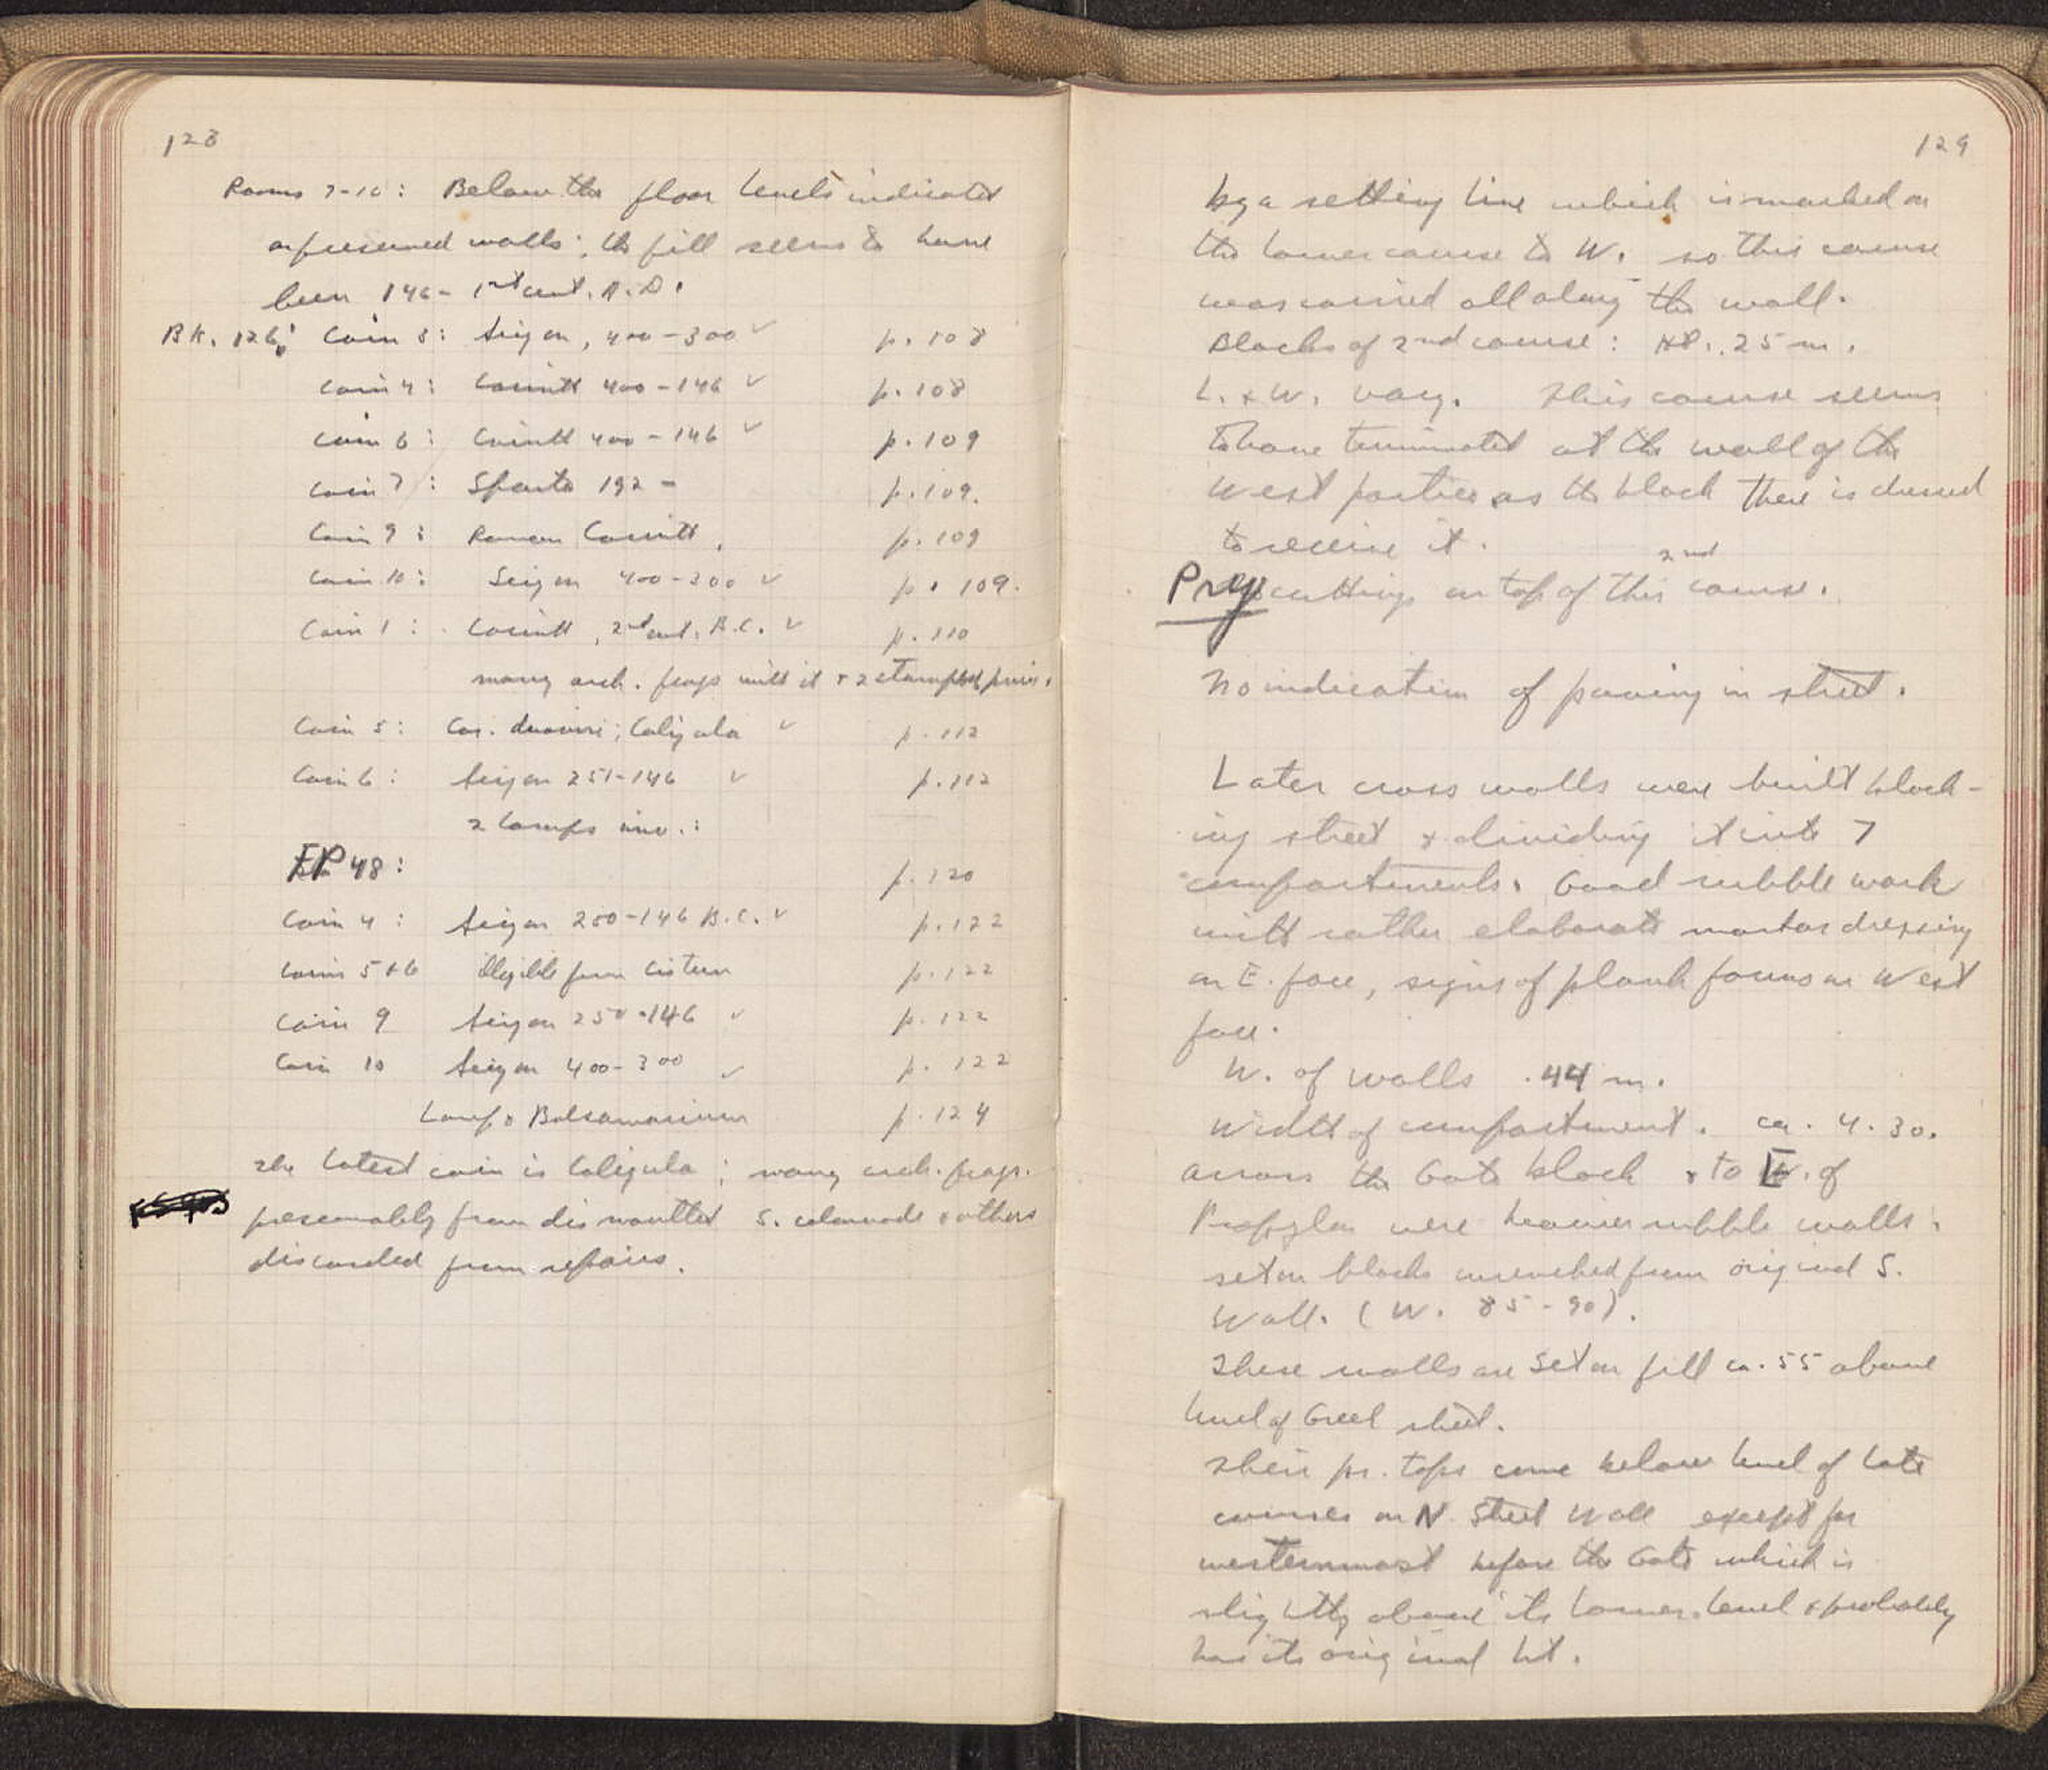 128
Rooms 7-10: Below the floor levels indicated
or preserved walls; the fill seems to have
been 146 - 1st cent. A.D.
BK. 126: Coin 3: Sicyon, 400-300 ✓ p. 108
Coin 4: Corinth 400-146 ✓ p. 108
Coin 6: Corinth 400-146 ✓ p. 109
Coin 7: Sparta 192- p. 109.
Coin 9: Roman Corinth. p. 109
Coin 10: Sicyon 400-300 ✓ p. 109.
Coin 1: Corinth, 2nd cent. B.C. ✓ p. 110
many arch. frags with it + 2 stamped
Coin 5: Cor. duoviri; Caligula ✓ p. 112
Coin 6: Sicyon 251-146 ✓ p. 112
2 lamps inv.:
FP 48: p. 120
Coin 4: Sicyon 250-146 B.C. ✓ p. 122
Coins 5+6 illegible from cistern p. 122
Coin 9 Sicyon 250-146 ✓ p. 122
Coin 10 Sicyon 400-300 ✓ p. 122
Lamp & Balsamarium p. 124
The latest coin is Caligula; many arch. frags.
presumably from dismantled S. colonnade & others
discarded from repairs.
129
by a setting line which is marked on
the lower course to W. so this course
was carried all along the wall.
Blocks of 2nd course: Ht. .25 m.
L. & W. vary. This course seems
to have terminated at the wall of the
West portico as the block there is dressed
to receive it.
Pry cuttings on top of this 2nd course.
No indication of paving in street.
Later cross walls were built block-
ing street & dividing it into 7
compartments. Good rubble work
with rather elaborate mortar dressing
on E. face, signs of plank forms on West
face.
W. of walls .44 m.
Width of compartment. ca. 4.30.
Across the Gate block & to E. of
Propylon were heavier rubble walls
set on blocks wrenched from original S.
Wall. (W. 85-90).
These walls are set on fill ca. 55 above
level of Greek street.
Their pr. tops come below level of late
courses on N. Street Wall except for
westernmost before the Gate which is
slightly above its lower level & probably
has its original ht.